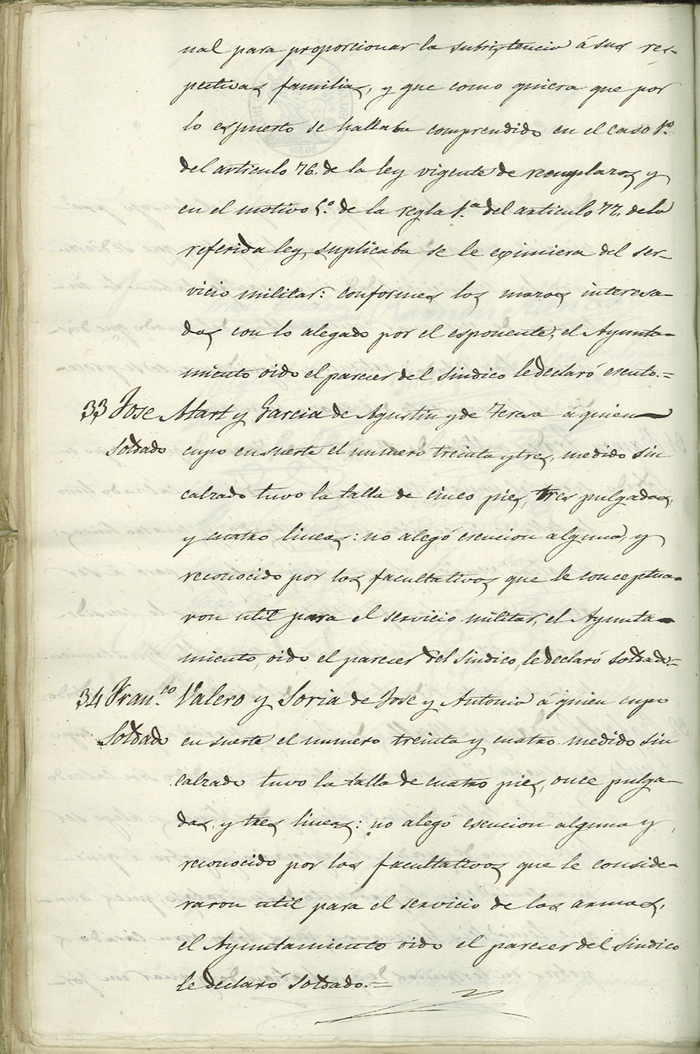 nal para proporcionar la subsistencia á sus res-
pectivas familias, y que como quiera que por
lo espuesto se hallaba comprendido en el caso 1º.
del articulo 76. de la ley vigente de remplazos y
en el motivo 5º. de la regla 1ª. del articulo 77. de la
referida ley, suplicaba se le eximiera del ser-
vicio militar: conformes los mozos interesa-
dos con lo alegado por el esponente, el Ayunta-
miento oido el parecer del Sindico le declaró esento.=
33 Jose Mart y Garcia de Agustin y de Teresa á quien
Soldado cupo en suerte el numero treinta y tres, medido sin
calzado tuvo la talla de cinco pies, tres pulgadas,
y cuatro lineas: no alegó esencion alguna, y
reconocido por los facultativos que le conceptua-
ron util para el servicio militar, el Ayunta-
miento, oido el parecer del Sindico, le declaró soldado=
34 Franco. Valero y Soria de Jose y Antonia á quien cupo
Soldado en suerte el numero treinta y cuatro, medido sin
calzado tuvo la talla de cuatro pies, once pulga-
das, y tres lineas: no alegó esencion alguna y,
reconocido por los facultativos que le conside-
raron util para el servicio de las armas,
el Ayuntamiento oido el parecer del Sindico
le declaró soldado.=